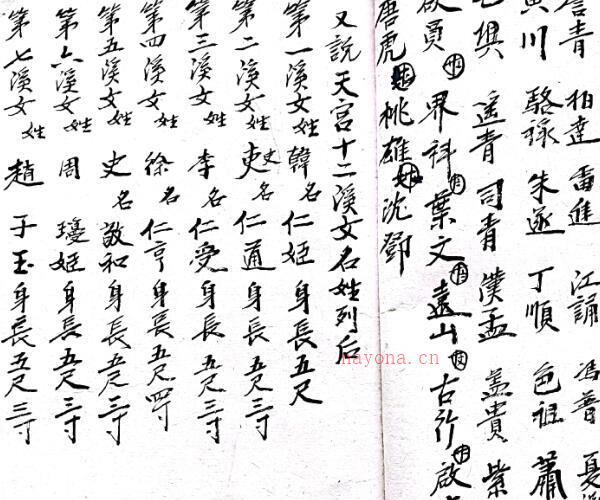 青 柏達 雷進 江誦 馮普 夏
川 駱 朱遂 丁順 包祖 蕭
興 遥青 司青 濮孟 盖貴 柴
員 界科 葉文 遠山 古行 啟
唐虎 桃雄 沈鄧
又説天宮十二溪女名姓列后
第一溪女姓韓名仁姬身長五尺
第二溪女姓吏史名仁通身長五尺三寸
第三溪女姓李名仁受身長五尺三寸
第四溪女姓徐名仁亨身長五尺四寸
第五溪女姓史名敬和身長五尺三寸
第六溪女姓周 瓊姬身長五尺三寸
第七溪女姓趙 子玉身長五尺三寸
nayona.cn